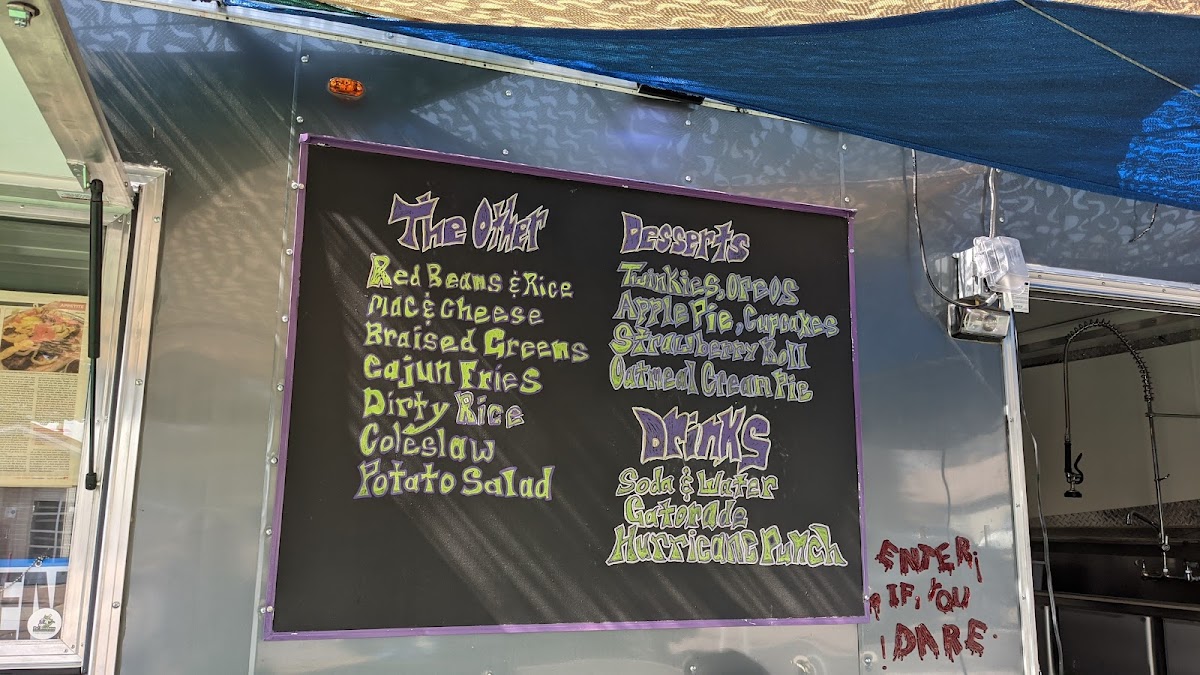 The Other
Red Beans & Rice
Mac & Cheese
Braised Greens
Cajun Fries
Dirty Rice
Coleslaw
Potato Salad
Desserts
Twinkies, Oreos
Apple Pie, Cupcakes
Strawberry Roll
Oatmeal Cream Pie
Drinks
Soda & Water
Gatorade
Hurricane Punch
ENTER
IF YOU
DARE